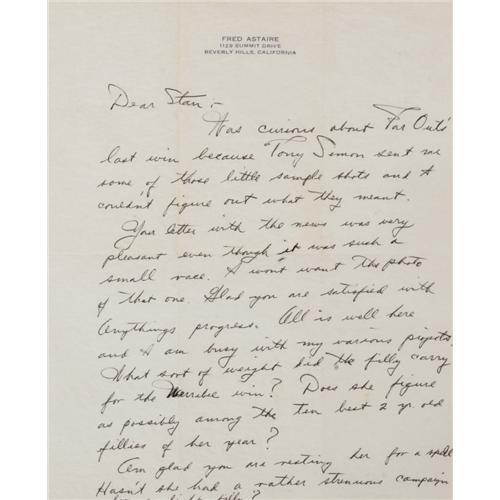 FRED ASTAIRE
1129 SUMMIT DRIVE
BEVERLY HILLS, CALIFORNIA
Dear Stan:-
Was curious about Far Outs'
last win because Tony Simon sent me
some of those little sample shots and I
couldn't figure out what they meant.
Your letter with the news was very
pleasant even though it was such a
small race. I wont want the photo
of that one. Glad you are satisfied with
Anythings progress. All is well here
and I am busy with my various projects.
What sort of weight did the filly carry
for the win? Does she figure
as possibly among the ten best 2 yr. old
fillies of her year?
Am glad you are resting her for a spell
Hasn't she had a rather strenuous campaign